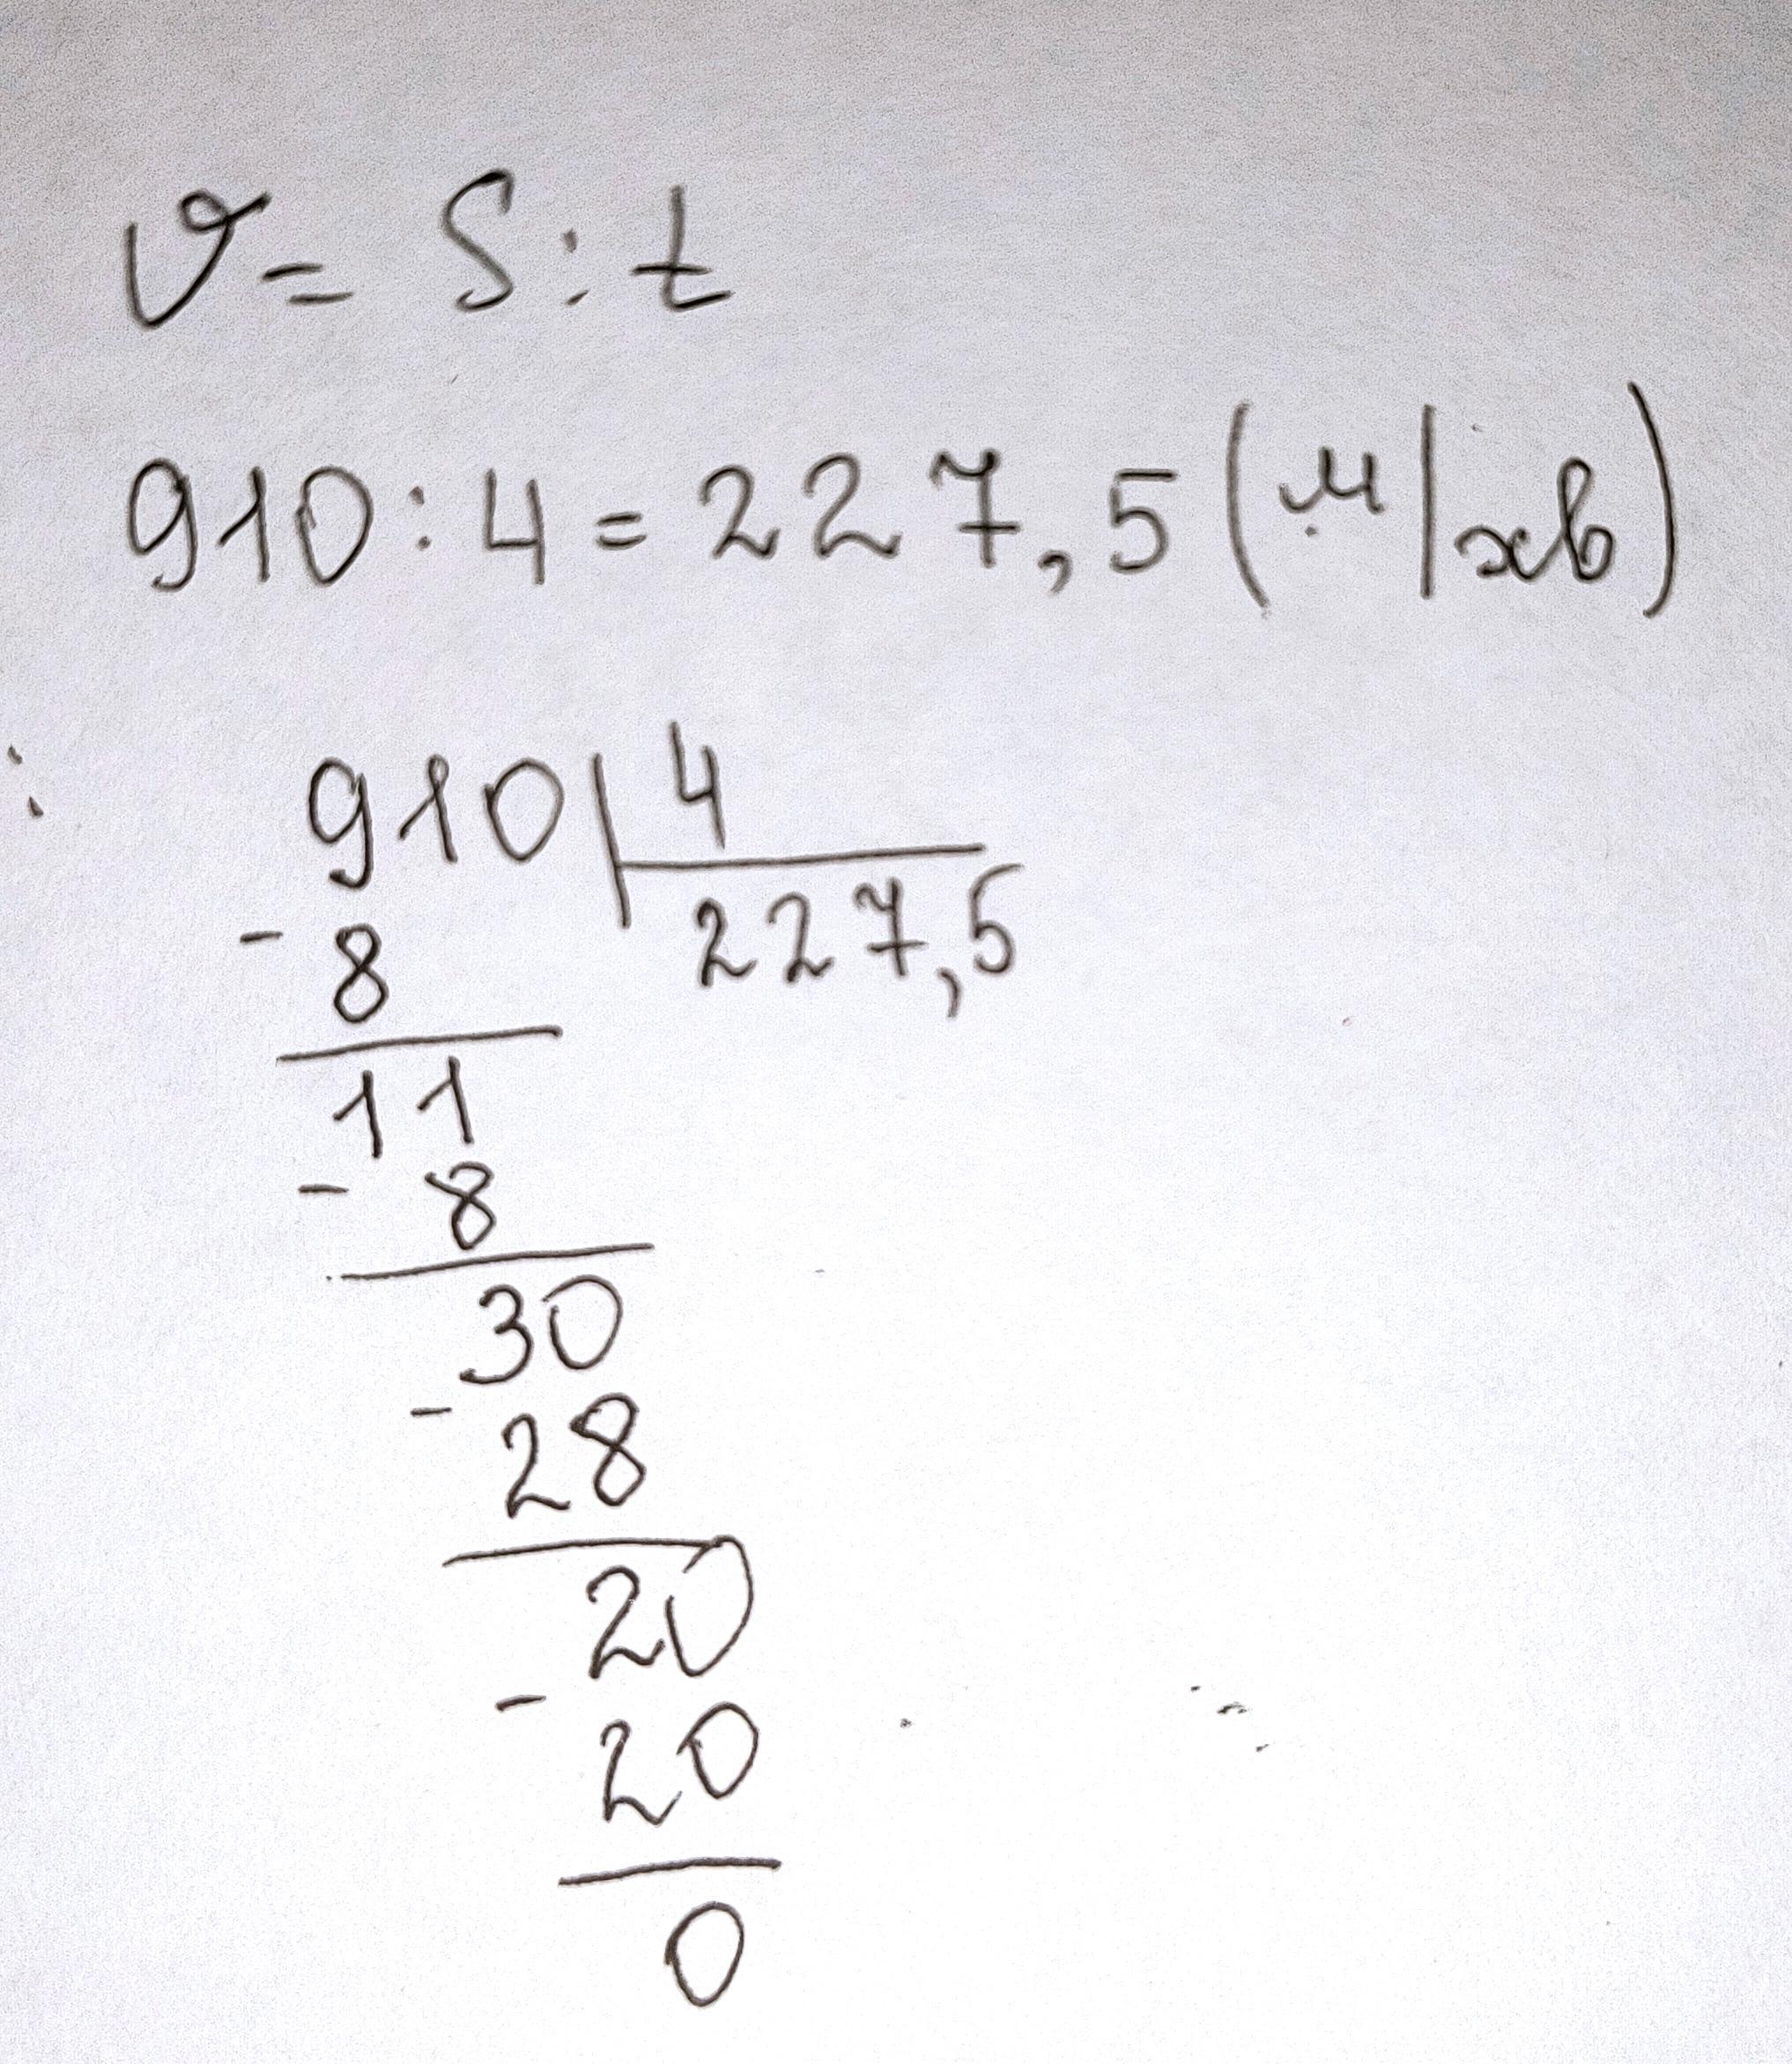 v = S : t
910 : 4 = 227,5 (м/хв)
910 | 4
- 8 227,5
11
- 8
30
- 28
20
- 20
0